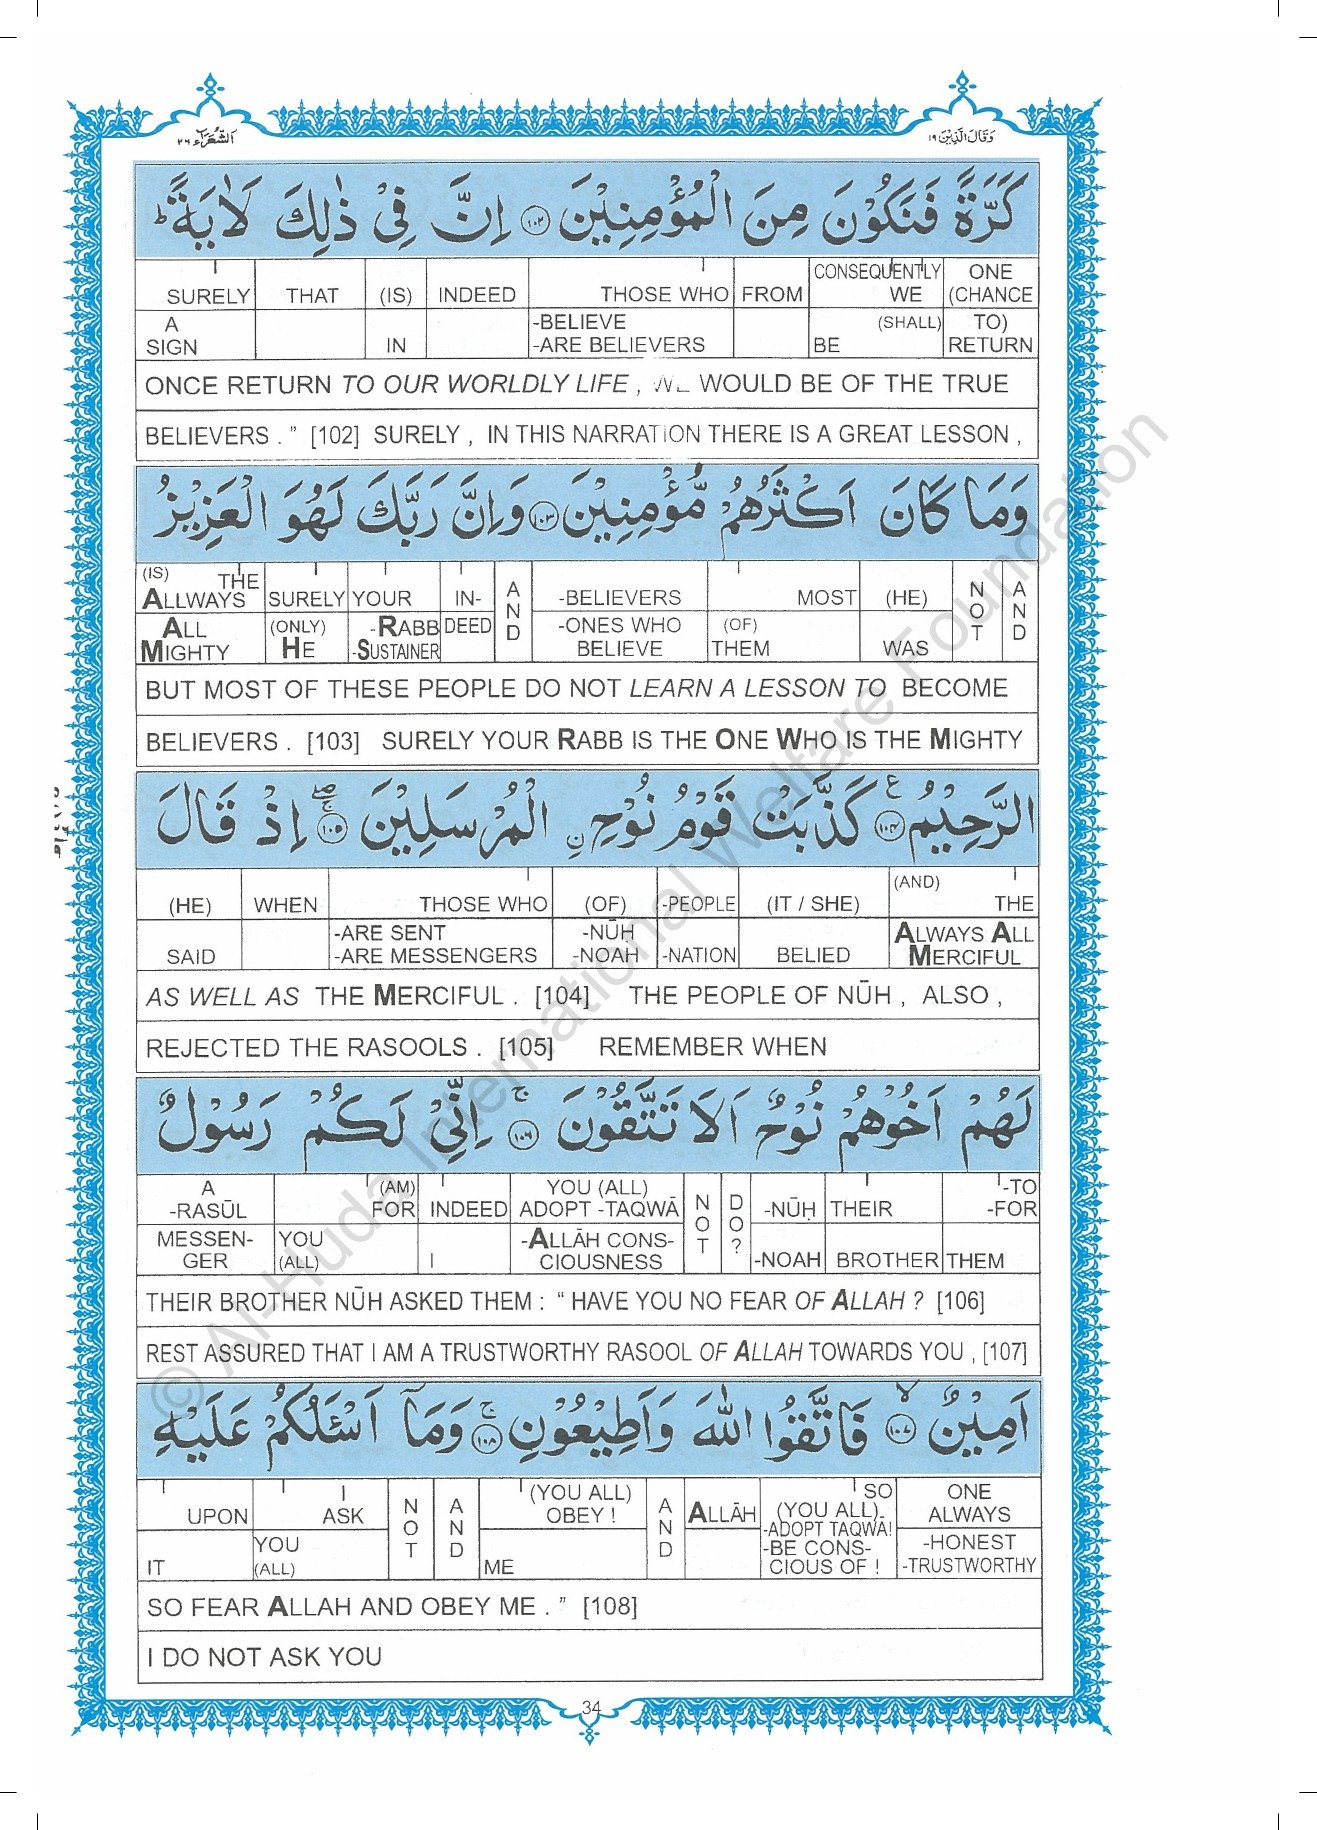 اَلشُّعَرَآء ٢٦
وَقَالَ الَّذِیْنَ ١٩
كَرَّةً فَنَكُوْنَ مِنَ الْمُؤْمِنِیْنَ ١٠٢ اِنَّ فِیْ ذٰلِكَ لَاٰیَةً ؕ
SURELY THAT (IS) INDEED THOSE WHO FROM CONSEQUENTLY WE ONE (CHANCE
A SIGN IN -BELIEVE -ARE BELIEVERS (SHALL) BE TO) RETURN
ONCE RETURN TO OUR WORLDLY LIFE , WE WOULD BE OF THE TRUE
BELIEVERS . ” [102] SURELY , IN THIS NARRATION THERE IS A GREAT LESSON ,
وَمَا كَانَ اَكْثَرُهُمْ مُّؤْمِنِیْنَ ١٠٣ وَاِنَّ رَبَّكَ لَهُوَ الْعَزِیْزُ
(IS) THE ALLWAYS SURELY YOUR IN- AND -BELIEVERS MOST (HE) NOT AND
ALL MIGHTY (ONLY) HE -RABB -SUSTAINER DEED -ONES WHO BELIEVE (OF) THEM WAS
BUT MOST OF THESE PEOPLE DO NOT LEARN A LESSON TO BECOME
BELIEVERS . [103] SURELY YOUR RABB IS THE ONE WHO IS THE MIGHTY
الرَّحِیْمُ ١٠٤ ع كَذَّبَتْ قَوْمُ نُوْحِ ن ِالْمُرْسَلِیْنَ ١٠٥ اِذْ قَالَ
(HE) WHEN THOSE WHO (OF) -PEOPLE (IT / SHE) (AND) THE
SAID -ARE SENT -ARE MESSENGERS -NŪH -NOAH -NATION BELIED ALWAYS ALL MERCIFUL
AS WELL AS THE MERCIFUL . [104] THE PEOPLE OF NŪH , ALSO ,
REJECTED THE RASOOLS . [105] REMEMBER WHEN
لَهُمْ اَخُوْهُمْ نُوْحٌ اَلَا تَتَّقُوْنَ ١٠٦ ج اِنِّیْ لَكُمْ رَسُوْلٌ
A -RASŪL (AM) FOR INDEED YOU (ALL) ADOPT -TAQWĀ NOT DO? -NŪḤ THEIR -TO -FOR
MESSEN- GER YOU (ALL) I -ALLĀH CONS- CIOUSNESS -NOAH BROTHER THEM
THEIR BROTHER NŪH ASKED THEM : “ HAVE YOU NO FEAR OF ALLAH ? [106]
REST ASSURED THAT I AM A TRUSTWORTHY RASOOL OF ALLAH TOWARDS YOU , [107]
اَمِیْنٌ ١٠٧ لا فَاتَّقُوا اللّٰهَ وَاَطِیْعُوْنِ ١٠٨ ج وَمَاۤ اَسْئَلُكُمْ عَلَیْهِ
UPON I ASK NOT AND (YOU ALL) OBEY ! AND ALLĀH SO (YOU ALL) ONE ALWAYS
IT YOU (ALL) ME -ADOPT TAQWĀ! -BE CONS- CIOUS OF ! -HONEST -TRUSTWORTHY
SO FEAR ALLAH AND OBEY ME . ” [108]
I DO NOT ASK YOU
34
© Al-Huda International Welfare Foundation